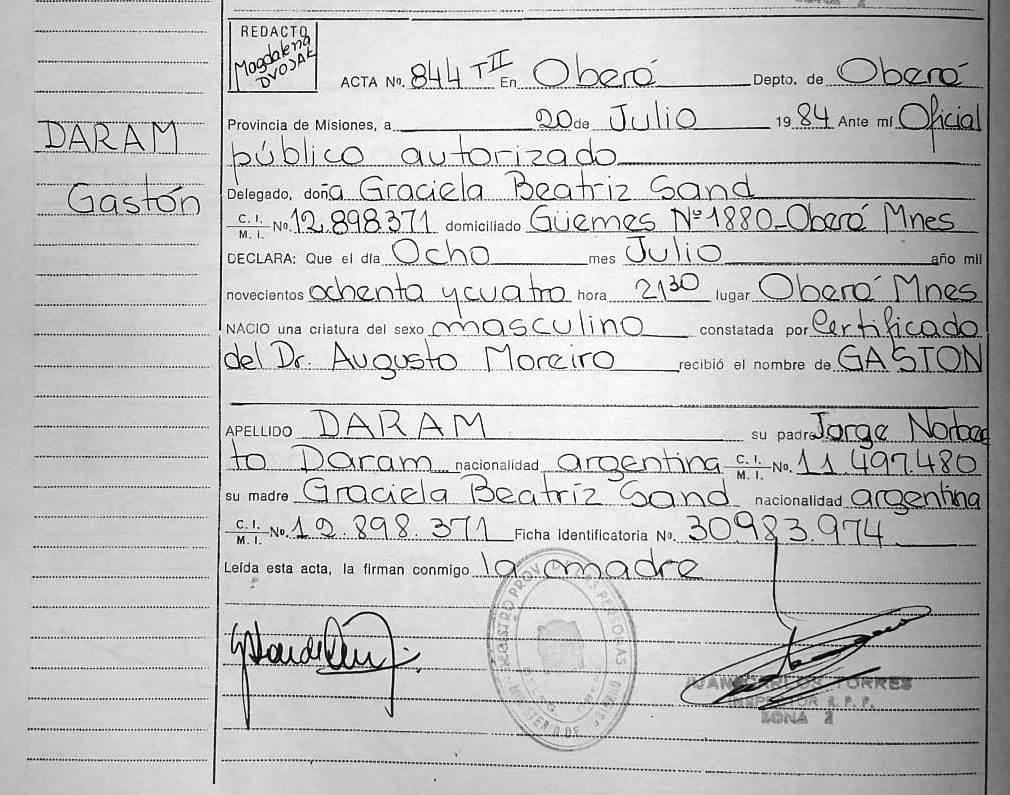 REDACTO
Magdalena
DVOJAK
ACTA No. 844 TII En Oberá Depto. de Oberá
Provincia de Misiones, a 20 de Julio 1984 Ante mí Oficial
DARAM
público autorizado
Gastón
Delegado, doña Graciela Beatriz Sand
C. I.
M. I. No. 12.898.371 domiciliado Güemes Nº 1880-Oberá Mnes
DECLARA: Que el día Ocho mes Julio año mil
novecientos ochenta y cuatro hora 21 30 lugar Oberá Mnes
NACIO una criatura del sexo masculino constatada por Certificado
del Dr. Augusto Moreiro recibió el nombre de GASTON
APELLIDO DARAM su padre Jorge Norber
to Daram nacionalidad argentina C. I. M. I. No. 11.497.480
su madre Graciela Beatríz Sand nacionalidad argentina
C. I.
M. I. No. 12.898.371 Ficha Identificatoria No. 30983.974
Leída esta acta, la firman conmigo la madre
JUAN CARLOS TORRES
INSPECTOR R. P. P.
ZONA 2